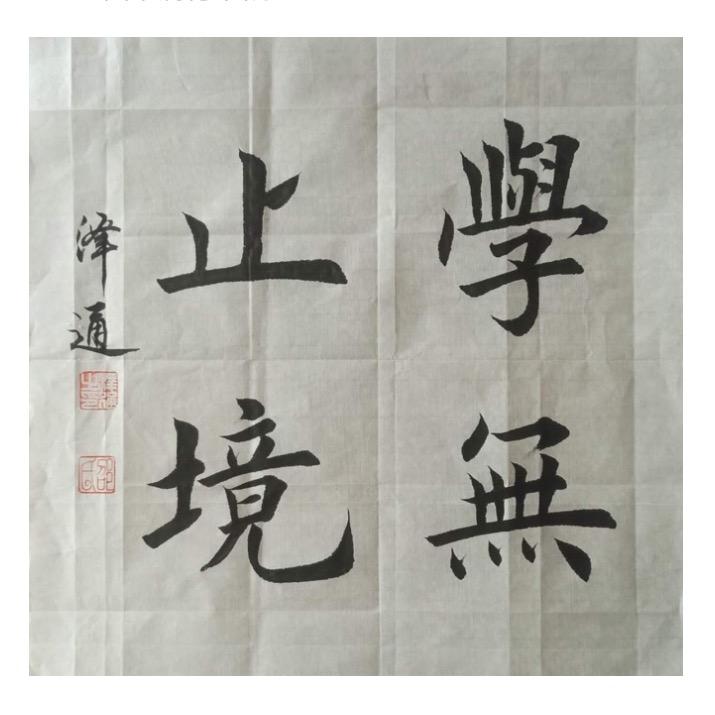 學無
止境
泽通